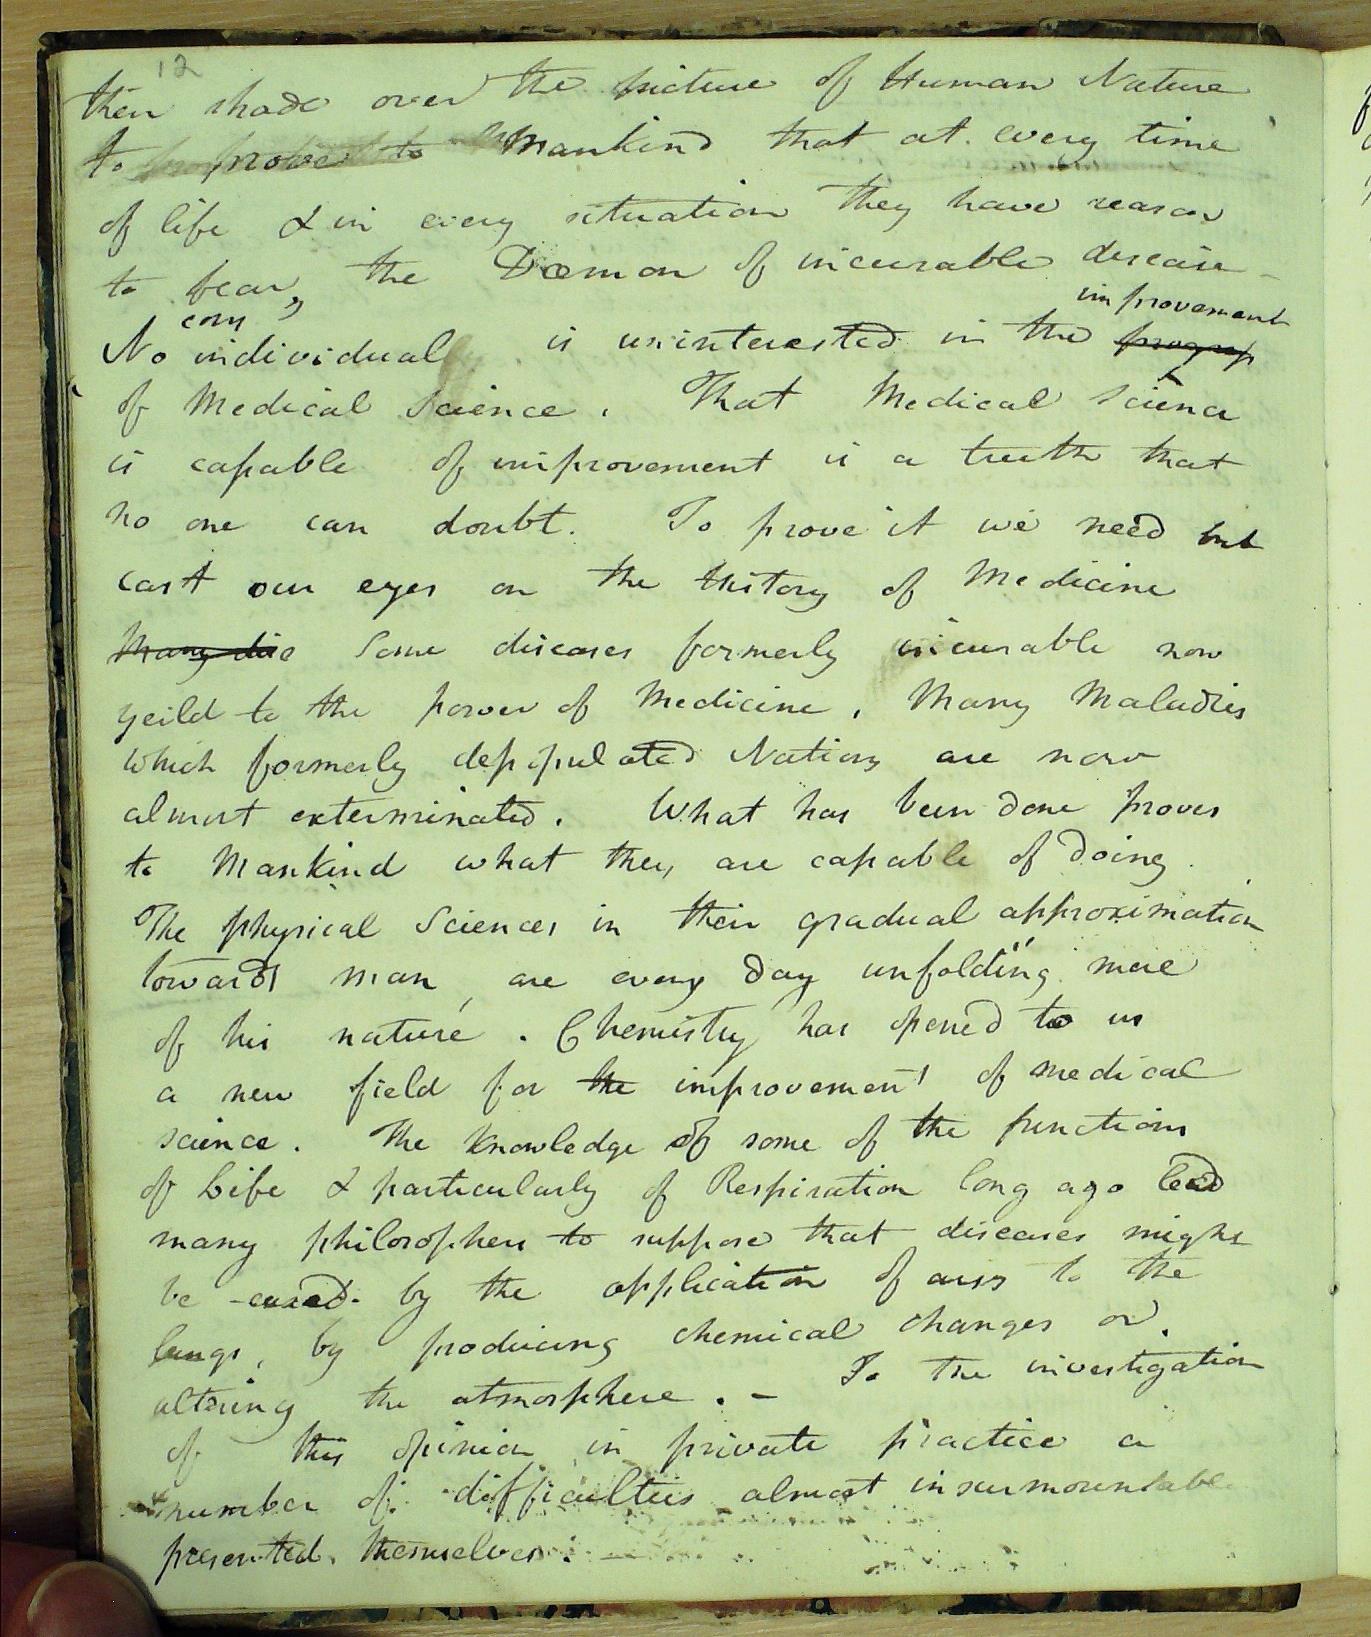 12
their shade over the picture of Human Nature
to prove to Mankind that at every time
of life & in every situation they have reason
to fear, the Dæmon of incurable disease
improvement
com
No individual is uninterested in the progress
of Medical Science. That Medical Science
is capable of improvement is a truth that
no one can doubt. To prove it we need but
cast our eyes on the History of Medicine
Many dise Some diseases formerly incurable now
yeild to the power of Medicine, Many Maladies
which formerly depopulated Nations are now
almost exterminated. What has been done proves
to Mankind what they are capable of doing
The physical Sciences in their gradual approximation
towards man, are every day unfolding more
of his nature. Chemistry has opened to us
a new field for the improvement of medical
science. The Knowledge of some of the functions
of Life & particularly of Respiration long ago lead
many philosophers to suppose that diseases might
be cured by the application of airs to the
lungs, by producing chemical changes or
altering the atmosphere. - To the investigation
of this opinion in private practice a
number of difficulties almost insurmountable
presented themselves.